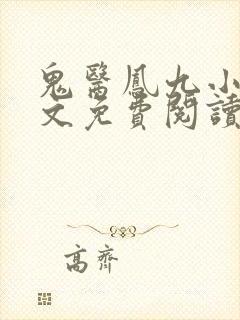 鬼醫鳳九小
文免費閱讀
高齊